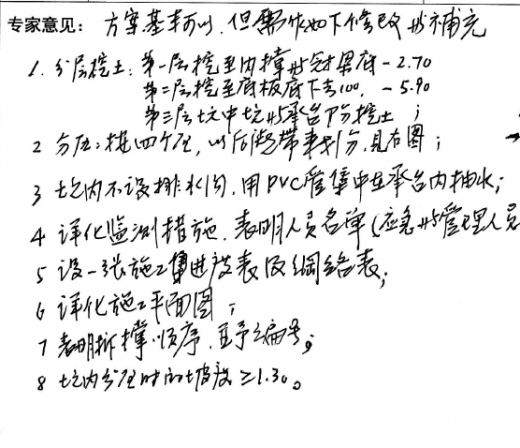 专家意见：方案基本可以，但需作如下修改与补充
1. 分层挖土：第一层挖至内撑与冠梁底-2.70
第二层挖至底板底下去100，-5.90
第三层坑中坑与承台下节挖土；
2 分区：按四个区，以后浇带来划分，见右图；
3 坑内不设排水沟，用PVC管集中在承台内抽水；
4 详化监测措施，表明人员名单（应急与管理人员
5 设一张施工进度表及网络表；
6 详化施工平面图；
7 表明拆撑顺序，互予编号；
8 坑内分区时的坡度≥1:3。